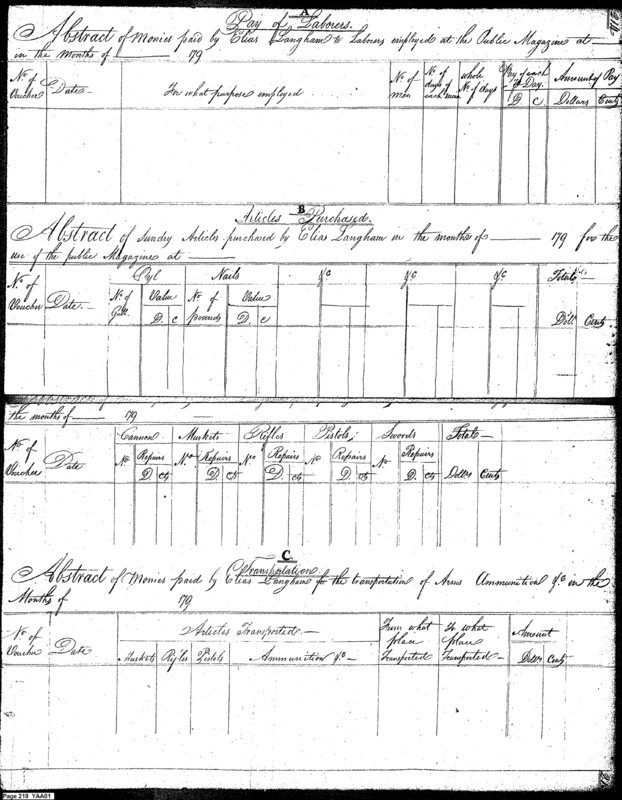 A
Pay of Laborers.
Abstract of Monies paid by Elias Langham to Laborers employed at the Public Magazine at
in the Months of 179
No. of Voucher Date For what purpose employed No. of men No. of days of each man whole No. of days Pay of each P Day. D. C Amount of Pay Dollars Cents
B
Articles Purchased.
Abstract of Sundry Articles purchased by Elias Langham in the months of 179 for the
use of the public Magazine at
No. of Voucher Date Oyl No. of Gall. Value D. C Nails No. of pounds Value D. C &c &c &c Total Doll. Cents
the months of 179
No. of Voucher Date Cannon No. Repairs D. Cts Muskets No. Repairs D. Cts Rifles No. Repairs D. Cts Pistols No. Repairs D. Cts Swords No. Repairs D. Cts Total Dollars Cents
C.
Transportation.
Abstract of Monies paid by Elias Langham for the transportation of Arms Ammunition &c in the
Months of 179
No. of Voucher Date Articles Transported Muskets Rifles Pistols Ammunition &c From what place Transported To what place Transported Amount Dollars Cents
Page 218 YAA01